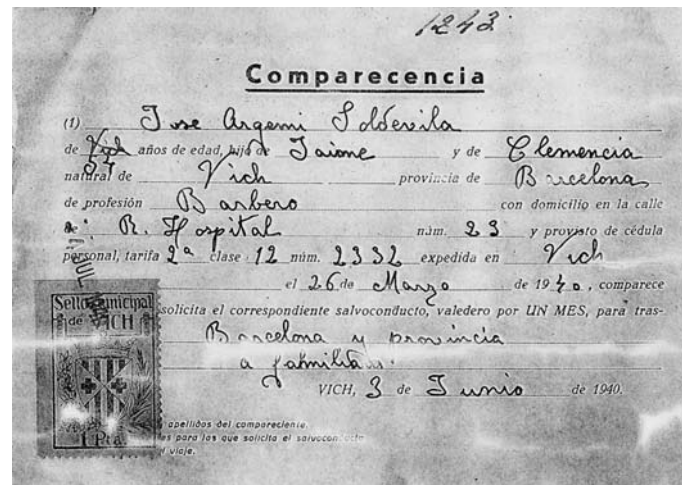 1243.
Comparecencia
(1) Jose Argemi Soldevila
de Vich años de edad, hijo de Jaime y de Clemencia
natural de Vich provincia de Barcelona
de profesión Barbero con domicilio en la calle
R. Hospital núm. 23 y provisto de cédula
personal, tarifa 2ª clase 12 núm. 2332 expedida en Vich
el 26 de Marzo de 1940, comparece
solicita el correspondiente salvoconducto, valedero por UN MES, para tras-
Barcelona y provincia
a familia
VICH, 3 de Junio de 1940.
Sello Municipal
de VICH
1 Pta
apellidos del compareciente.
es para los que solicita el salvoconducto
viaje.